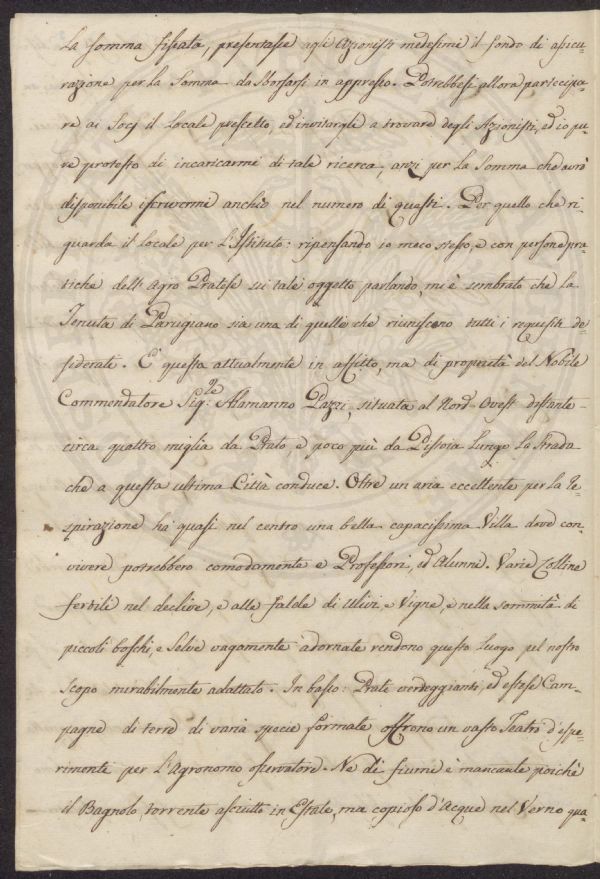 La somma fissata, presentasse agli Azionisti medesimi il fondo di assicu=
razione per la Somma da sborsarsi in appresso. Potrebbesi allora partecipa=
re ai Socj il Locale prescelto, ed invitargli a trovare degli Azionisti, ed io pu=
re protesto di incaricarmi di tale ricerca, anzi per la somma che avrò
disponibile iscrivermi anchio nel numero di questi. Per quello che ri=
guarda il Locale per L'Istituto: ripensando io meco stesso, e con persone pra=
tiche dell'Agro Pratese su tale oggetto parlando, mi è sembrato che La
Tenuta di Parugiano sia una di quelle che riuniscono tutti i requisiti de=
siderate. E' questa attualmente in affitto, ma di proprietà del Nobile
Commendatore Sig:re Alamanno Pazzi, situata al Nord-Ovest distante
circa quattro miglia da Prato, e poco più da Pistoia Lungo La Strada
che a questa ultima Città conduce. Oltre un aria eccellente per la re=
spirazione ha quasi nel centro una bella capacissima Villa dove con=
vivere potrebbero comodamente e Professori, ed Alunni. Varie Colline
fertili nel declive, e alle falde di Ulivi, e Vigne, e nella sommità di
piccoli boschi, e Selve vagamente adornate rendono questo Luogo pel nostro
scopo mirabilmente adattato. In basso: Prati verdeggianti, ed estese Cam=
pagne di terre di varia specie formate offrono un vasto Teatro d'espe=
rimenti per L'Agronomo osservatore. Ne di fiumi è mancante poichè
il Bagnolo, torrente asciutto in Estate, ma copioso d'Acque nel Verno qua=